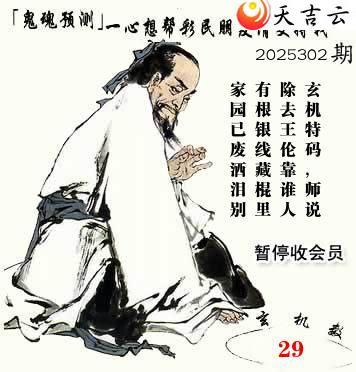 天吉云
「鬼魂预测」一心想帮彩民朋
2025302期
玄机特码，师说
除去王伦靠谁人
有根银线藏棍里
家园已废洒泪别
暂停收会员
玄机数
29